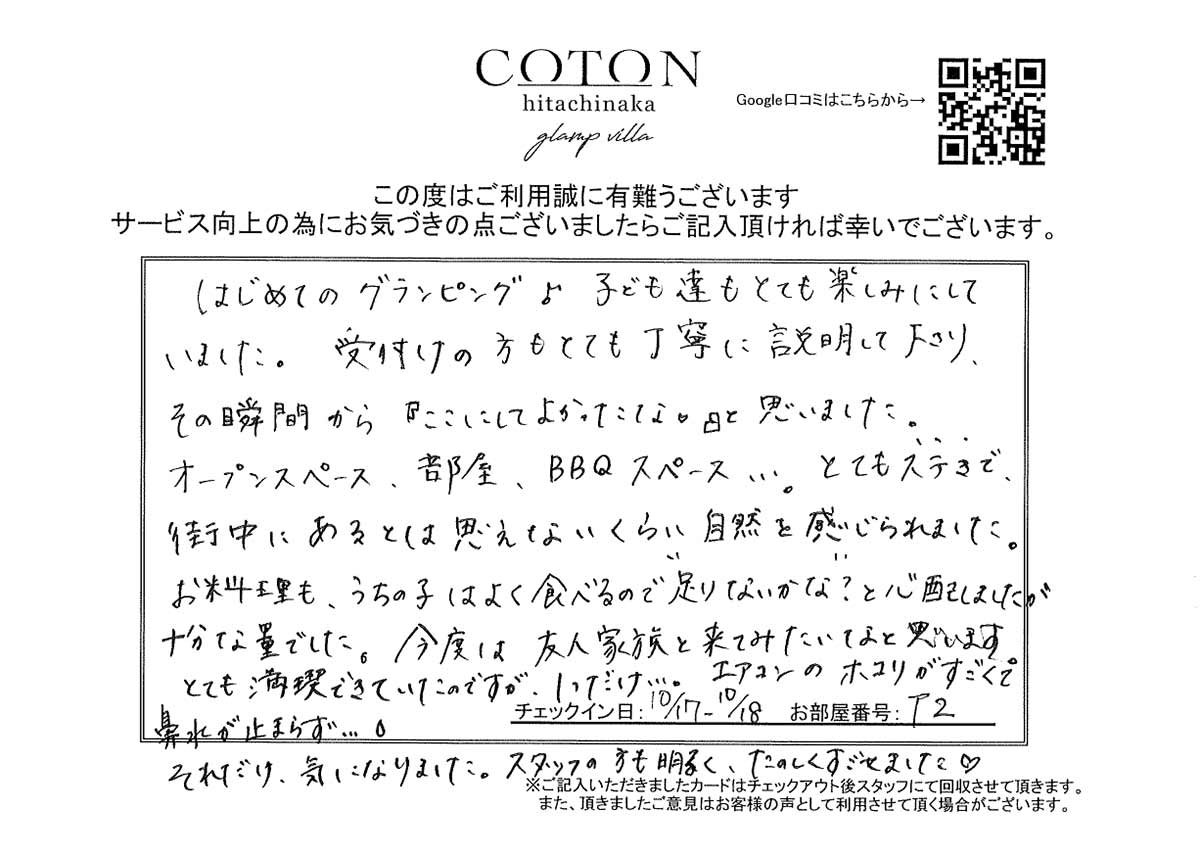 COTON
hitachinaka
glamp villa
Google口コミはこちらから→
この度はご利用誠に有難うございます
サービス向上の為にお気づきの点ございましたらご記入頂ければ幸いでございます。
はじめてのグランピング♪ 子ども達もとても楽しみにして
いました。 受付けの方もとても丁寧に説明して下さり、
その瞬間から『ここにしてよかったな。』と思いました。
オープンスペース、部屋、BBQスペース…。とてもステキで、
街中にあるとは思えないくらい自然を感じられました。
お料理も、うちの子はよく食べるので"足りないかな?"と心配しましたが
十分な量でした。今度は友人家族と来てみたいなと思います
とても満喫できていたのですが、1つだけ…。エアコンのホコリがすごくて
チェックイン日: 10/17-10/18 お部屋番号: T2
鼻水が止まらず…
それだけ、気になりました。スタッフの方も明るく、たのしくすごせました♡
※ご記入いただきましたカードはチェックアウト後スタッフにて回収させて頂きます。
また、頂きましたご意見はお客様の声として利用させて頂く場合がございます。